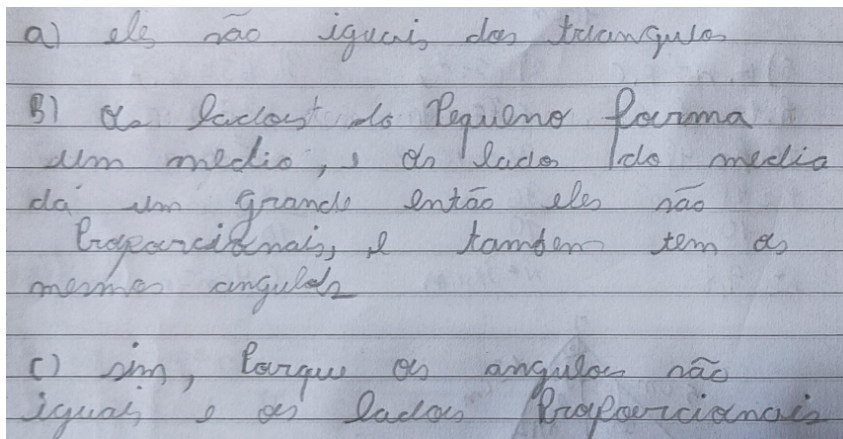 a) eles são iguais dos triangulos
B) os lados do Pequeno forma
um medio, e os lados do medio
dá um grande então eles são
Proporcionais, e tambem tem os
mesmos angulos
C) sim, Porque os angulos são
iguais e os lados Proporcionais